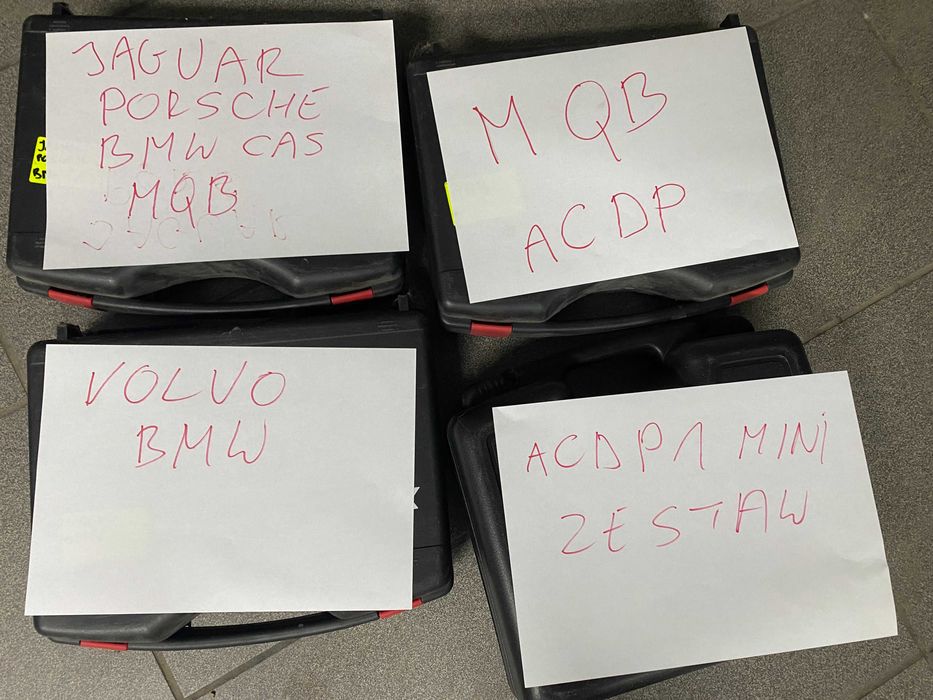 JAGUAR
PORSCHE
BMW CAS
MQB
MQB
ACDP
VOLVO
BMW
ACDP1 MINI
ZESTAW